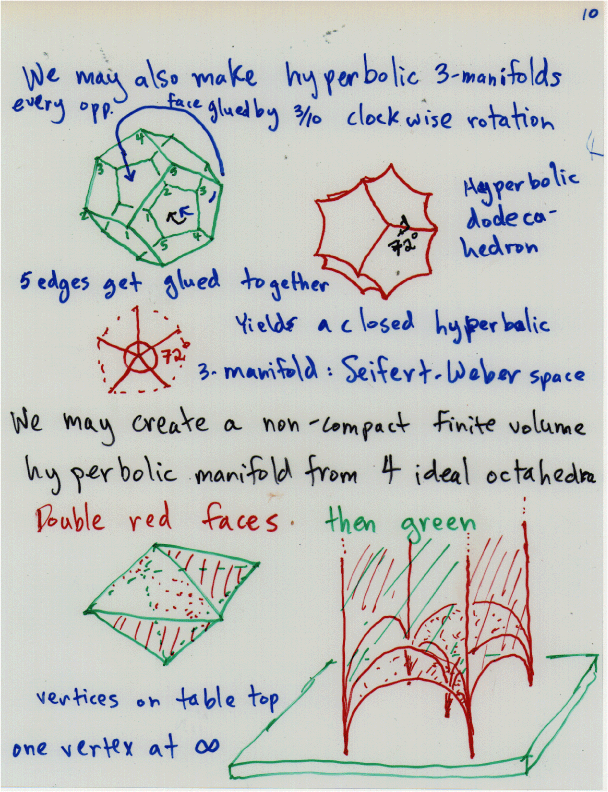 10
We may also make hyperbolic 3-manifolds
every opp. face glued by 3/10 clockwise rotation
4
3
5
2
3
2
1
1
5
4
Hyperbolic
dodeca-
hedron
72°
5 edges get glued together
72°
Yields a closed hyperbolic
3-manifold: Seifert-Weber space
We may create a non-compact finite volume
hyperbolic manifold from 4 ideal octahedra
Double red faces. then green
vertices on table top
one vertex at ∞